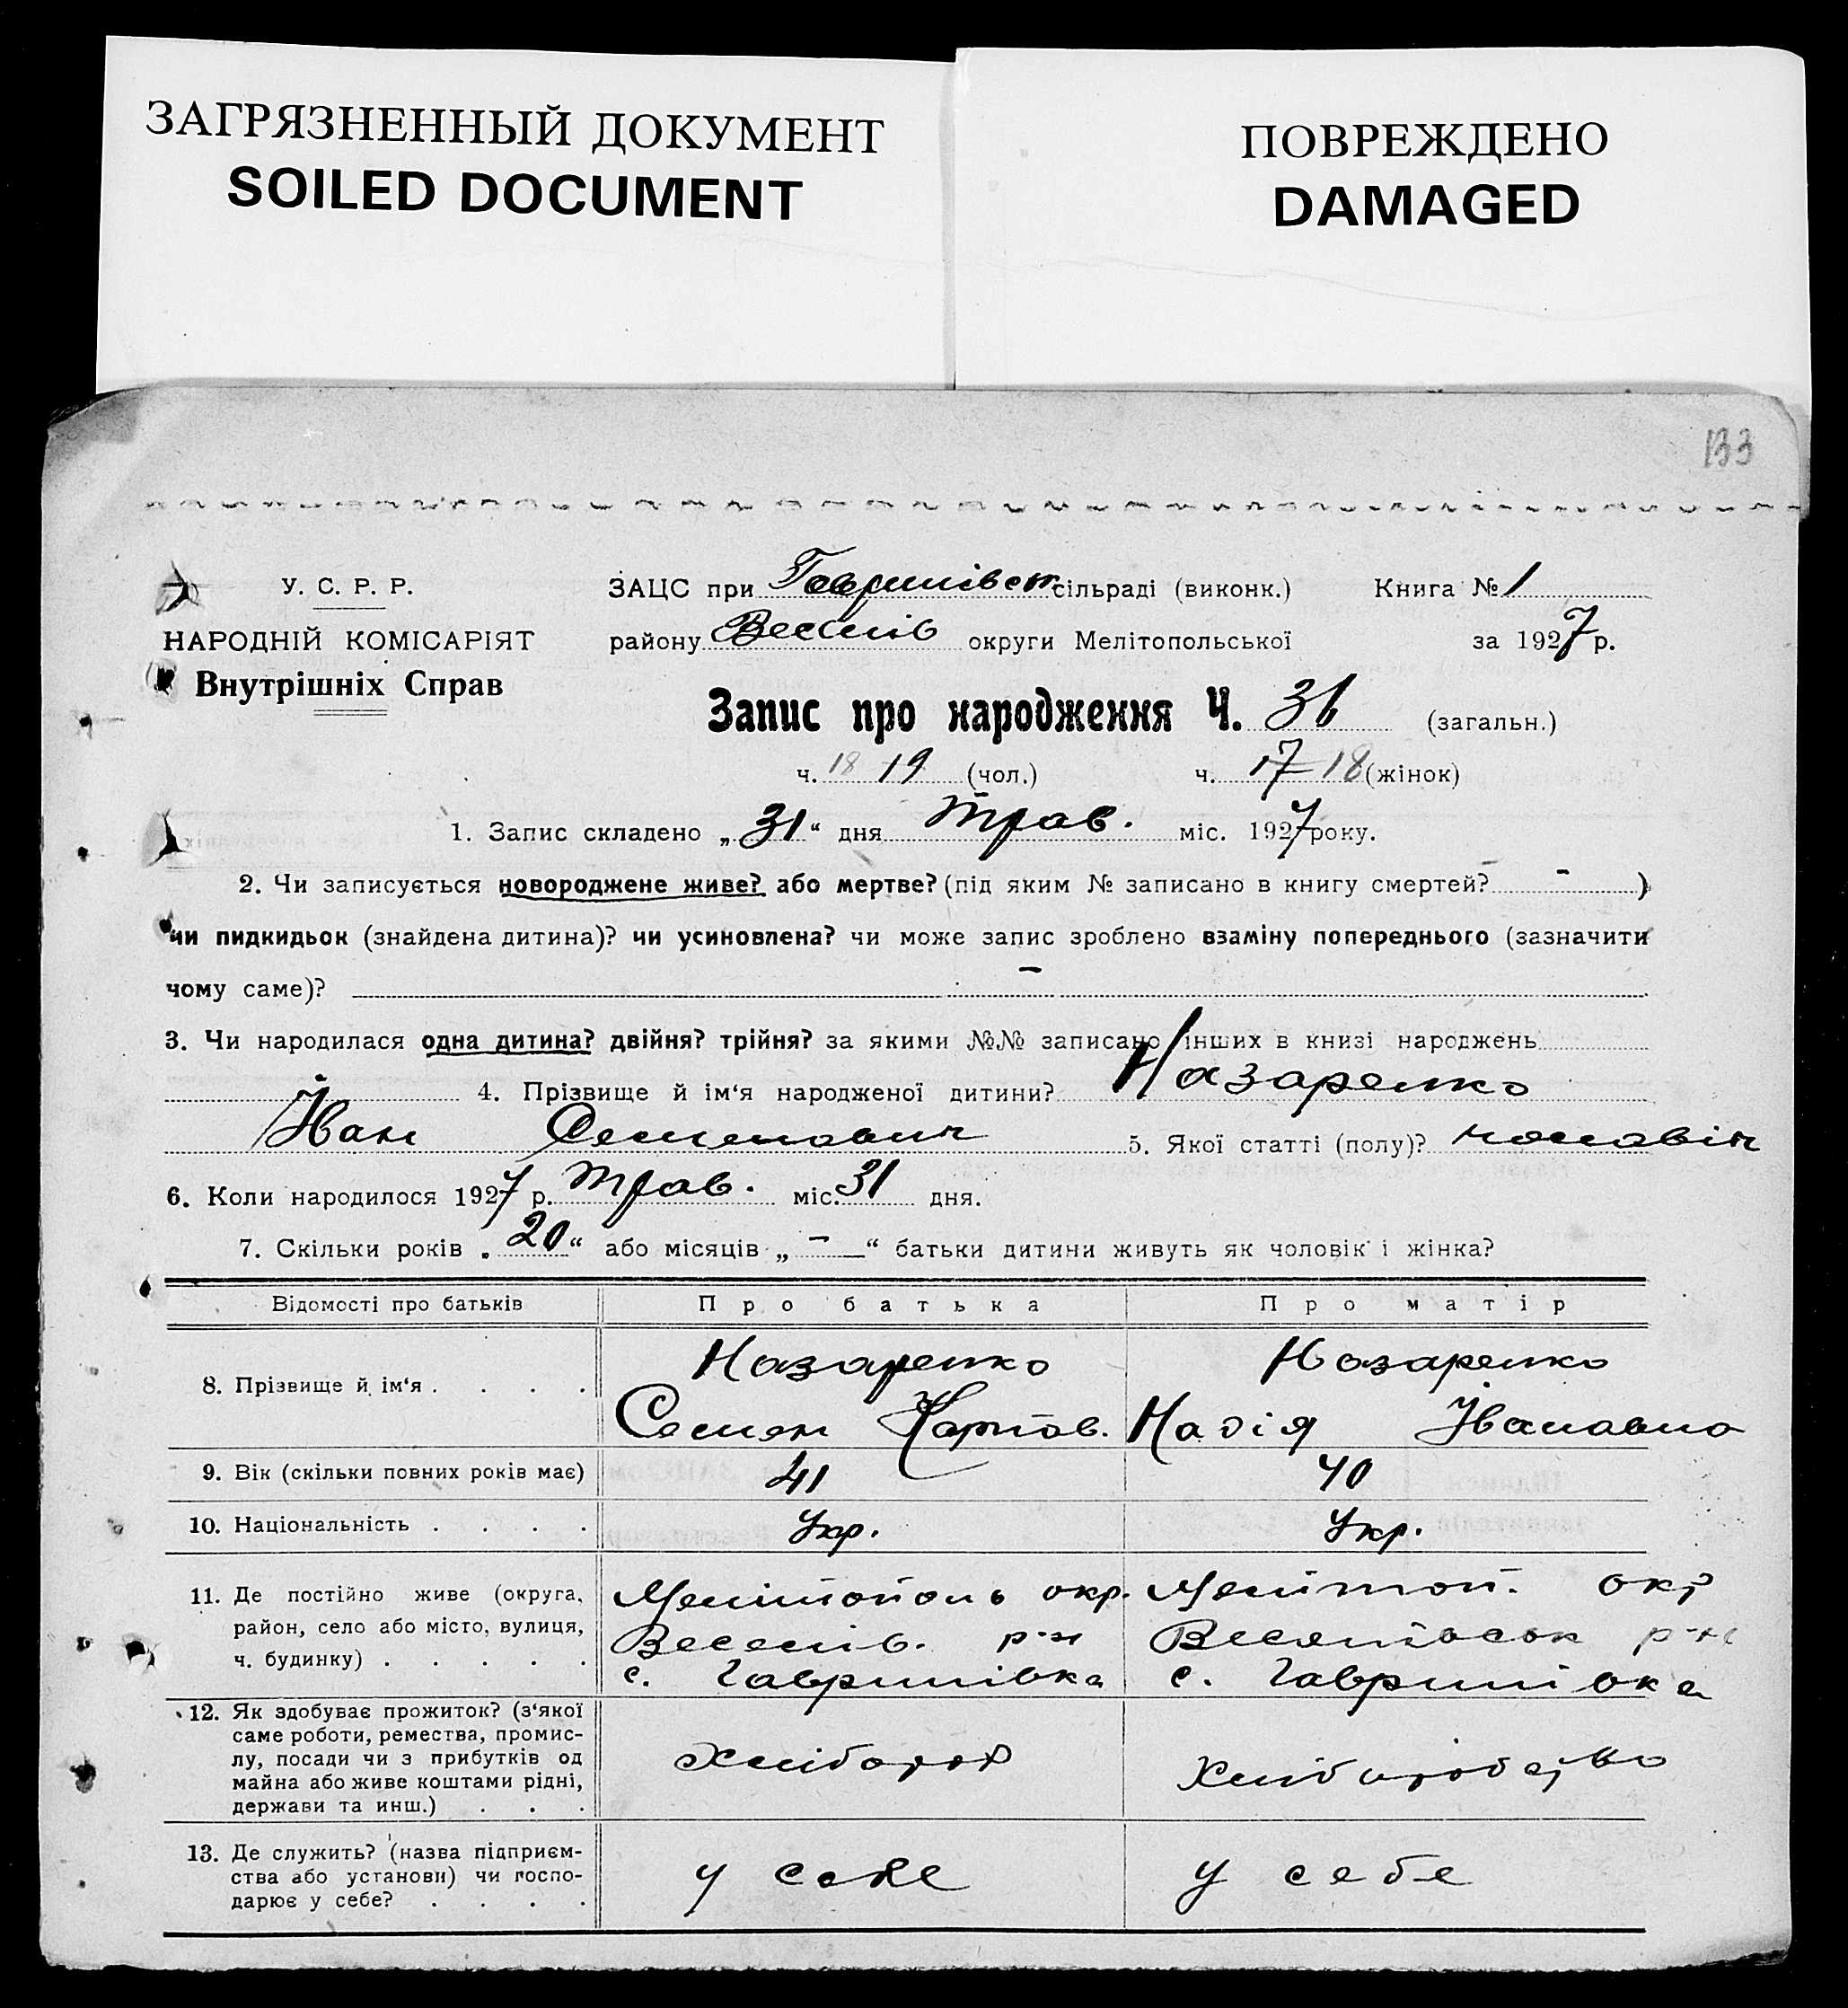 ЗАГРЯЗНЕННЫЙ ДОКУМЕНТ
SOILED DOCUMENT
ПОВРЕЖДЕНО
DAMAGED
133
У. С. Р. Р.
НАРОДНІЙ КОМІСАРІЯТ
Внутрішніх Справ
ЗАЦС при Гаврилівськ. сільраді (виконк.) Книга № 1
району Веселів округи Мелітопольської за 1927 р.
Запис про народження Ч. 36 (загальн.)
ч. 18 19 (чол.) ч. 17 18 (жінок)
1. Запис складено „31“ дня Трав. міс. 1927 року.
2. Чи записується новороджене живе? або мертве? (під яким № записано в книгу смертей? - )
чи пидкидьок (знайдена дитина)? чи усиновлена? чи може запис зроблено взаміну попереднього (зазначити
чому саме)? -
3. Чи народилася одна дитина? двійня? трійня? за якими №№ записано інших в книзі народжень
4. Прізвище й ім‘я народженої дитини? Назаренко
Іван Семенович 5. Якої статті (полу)? чоловіч
6. Коли народилося 1927 р. Трав. міс. 31 дня.
7. Скільки років „20“ або місяців „-“ батьки дитини живуть як чоловік і жінка?
Відомості про батьків Про батька Про матір
8. Прізвище й ім‘я . . . . Назаренко Семен Карпов. Назаренко Надія Івановна
9. Вік (скільки повних років має) 41 40
10. Національність . . . . Укр. Укр.
11. Де постійно живе (округа, район, село або місто, вулиця, ч. будинку) . . . . . Мелітополь окр. Веселів. р-н с. Гаврилівка Меліттоп. окр р-н с. Гаврилівка
12. Як здобуває прожиток? (з‘якої саме роботи, ремества, промислу, посади чи з прибутків од майна або живе коштами рідні, держави та инш.) . . . Хлібороб
13. Де служить? (назва підприємства або установи) чи господарює у себе? . . . . у себе у себе